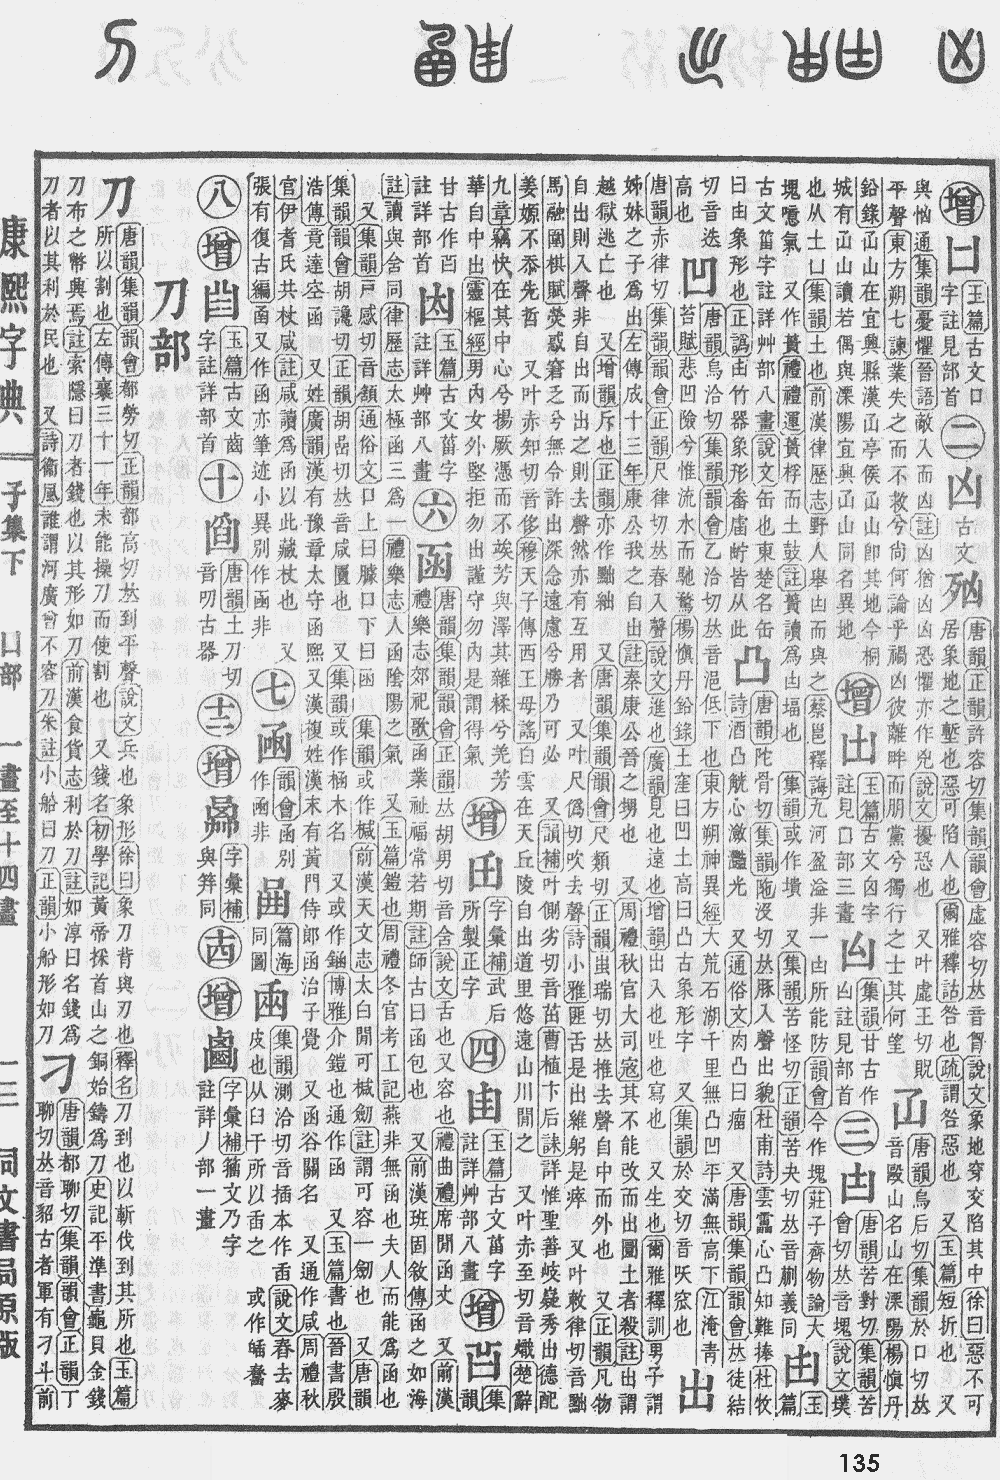 增凵玉篇古文口字註見部首
二凶古文殈唐韻正韻許容切集韻韻會虛容切𠀤音胷說文象地穿交陷其中徐曰惡不可居象地之塹也惡可陷人也爾雅釋詁咎也疏謂咎惡也又玉篇短折也又
與恟通集韻憂懼晉語敵入而凶註凶猶凶凶恐懼亦作兇說文擾恐也又叶虛王切貺
平聲東方朔七諫業失之而不救兮尚何論乎禍凶彼離畔而朋黨兮獨行之士其何望
唐韻烏后切集韻於口切𠀤音毆山名山在溧陽楊愼丹
鉛錄山在宜興縣漢亭侯山卽其地今桐城有山讀若偶與溧陽宜興山同名異地
增出玉篇古文凶字註見口部三畫
凶註見部首
三凷唐韻苦對切集韻苦會切𠀤音塊說文墣也从土凵集韻土也前漢律歷志野人舉凷而與之蔡邕釋誨九河盈溢非一凷所能防韻會今作塊莊子齊物論大塊噫氣又作蕢禮禮運蕢桴而土鼓註蕢讀爲凷堛也集韻或作墤又集韻苦怪切正韻苦夬切𠀤音蒯義同
甴玉篇古文甾字註詳艸部八畫
說文缶也東楚名缶曰甴象形也正譌甴竹器象形畚庿皆从此
凸唐韻陀骨切集韻陁沒切𠀤豚入聲出貌杜甫詩雲靁心凸知難捧杜牧詩酒凸觥心瀲灩光又通俗文肉凸曰瘤又唐韻集韻韻會𠀤徒結切音迭高也
凹唐韻烏洽切集韻韻會乙洽切𠀤音浥低下也東方朔神異經大荒石湖千里無凸凹平滿無高下江淹靑苔賦悲凹險兮惟流水而馳騖楊愼丹鉛錄土窪曰凹土高曰凸古象形字又集韻於交切音㕭窊也
出唐韻赤律切集韻韻會正韻尺律切𠀤春入聲說文進也廣韻見也遠也增韻出入也吐也寫也又生也爾雅釋訓男子謂姊妹之子爲出左傳成十三年康公我之自出註秦康公晉之甥也又周禮秋官大司寇其不能改而出圜土者殺註出謂越獄逃亡也又增韻斥也正韻亦作黜絀又唐韻集韻韻會尺類切正韻蚩瑞切𠀤推去聲自中而外也又正韻凡物自出出則入聲非自出而出之則去聲然亦有互用者又叶尺僞切吹去聲詩小雅匪舌是出維躬是瘁又叶敕律切音黜
馬融圍棋賦熒惑窘乏兮無令詐出深念遠慮兮勝乃可必又韻補叶側劣切音茁曹植卞后誄詳惟聖善岐嶷秀出德配姜嫄不忝先哲又叶亦知切音侈穆天子傳西王母謠白雲在天丘陵自出道里悠遠山川閒之又叶赤至切音熾楚辭九章竊快在其中心兮揚厥憑而不竢芳與澤其雜糅兮羌芳華自中出靈樞經男內女外堅拒勿出謹守勿內是謂得氣
增字彙補武后所製正字
四甴玉篇古文葘字註詳艸部八畫
增集韻甘古作註詳部首
玉篇古文葘字註詳艸部八畫
六函唐韻集韻韻會正韻𠀤胡男切音含說文舌也又容也禮曲禮席閒函丈又前漢禮樂志郊祀歌函蒙祉福常若期註師古曰函包也又前漢班固敘傳函之如海註讀與含同律歷志太極函三爲一禮樂志人函陰陽之氣又玉篇鎧也周禮冬官考工記燕非無函也夫人而能爲函也又集韻戸感切音頷通俗文口上曰臄口下曰函集韻或作椷前漢天文志太白閒可椷劒註謂可容劒也又唐韻集韻韻會胡讒切正韻胡嵒切𠀤音咸匱也又集韻或作椷木名又或作䤴博雅介鎧也通作函又玉篇書也晉書殷浩傳竟達空函又姓廣韻漢有豫章太守函熙又漢複姓漢末有黃門侍郞函治子覺又函谷關名又通作咸周禮秋官伊耆氏共杖咸註咸讀爲函以此藏杖也又張有復古編函又作亦筆迹小異別作凾非
七凾韻會函別作凾非
篇海同圖
集韻測洽切音插本作臿說文舂去麥皮也从臼干所以臿之或作䎫䵵
八增玉篇古文齒字註詳部首
十唐韻土刀切音叨古器
十二增字彙補與算同
十四增字彙補籀文乃字註詳丿部一畫
刀部
刀唐韻集韻韻會都勞切正韻都高切𠀤到平聲說文兵也象形徐曰象刀背與刃也釋名刀到也以斬伐到其所也玉篇所以割也左傳襄三十一年未能操刀而使割也又錢名初學記黃帝採首山之銅始鑄爲刀史記平準書龜貝金錢刀布之幣興焉註索隱曰刀者錢也以其形如刀前漢食貨志利於刀註如淳曰名錢爲刀者以其利於民也又詩衞風誰謂河廣曾不容刀朱註小船曰刀正韻小船形如刀
刁唐韻都聊切集韻韻會正韻丁聊切𠀤音貂古者軍有刁斗前
康熙字典
子集下 凵部 一畫至十四畫
一三
同文書局原版
135